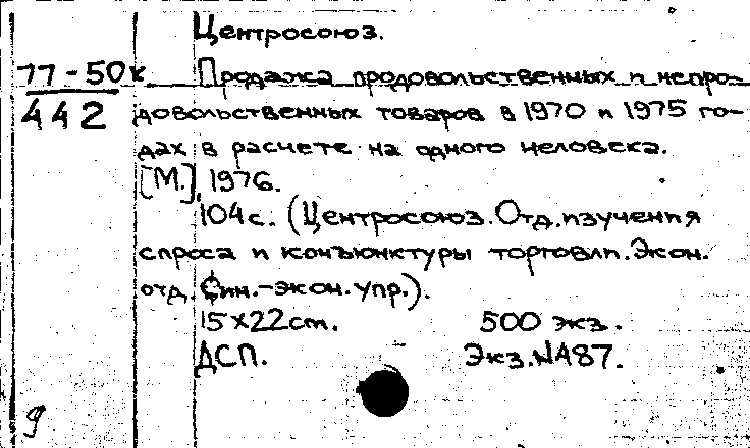 Центросоюз.
77-50к Продажа продовольственных и непро-
442 довольственных товаров в 1970 и 1975 го-
дах в расчете на одного человека.
[М.], 1976.
104с. (Центросоюз. Отд. изучения
спроса и конъюнктуры торговли. Экон.
отд. Фин.-экон. упр.).
15х22cm. 500 экз.
ДСП. Экз. №А87.
9